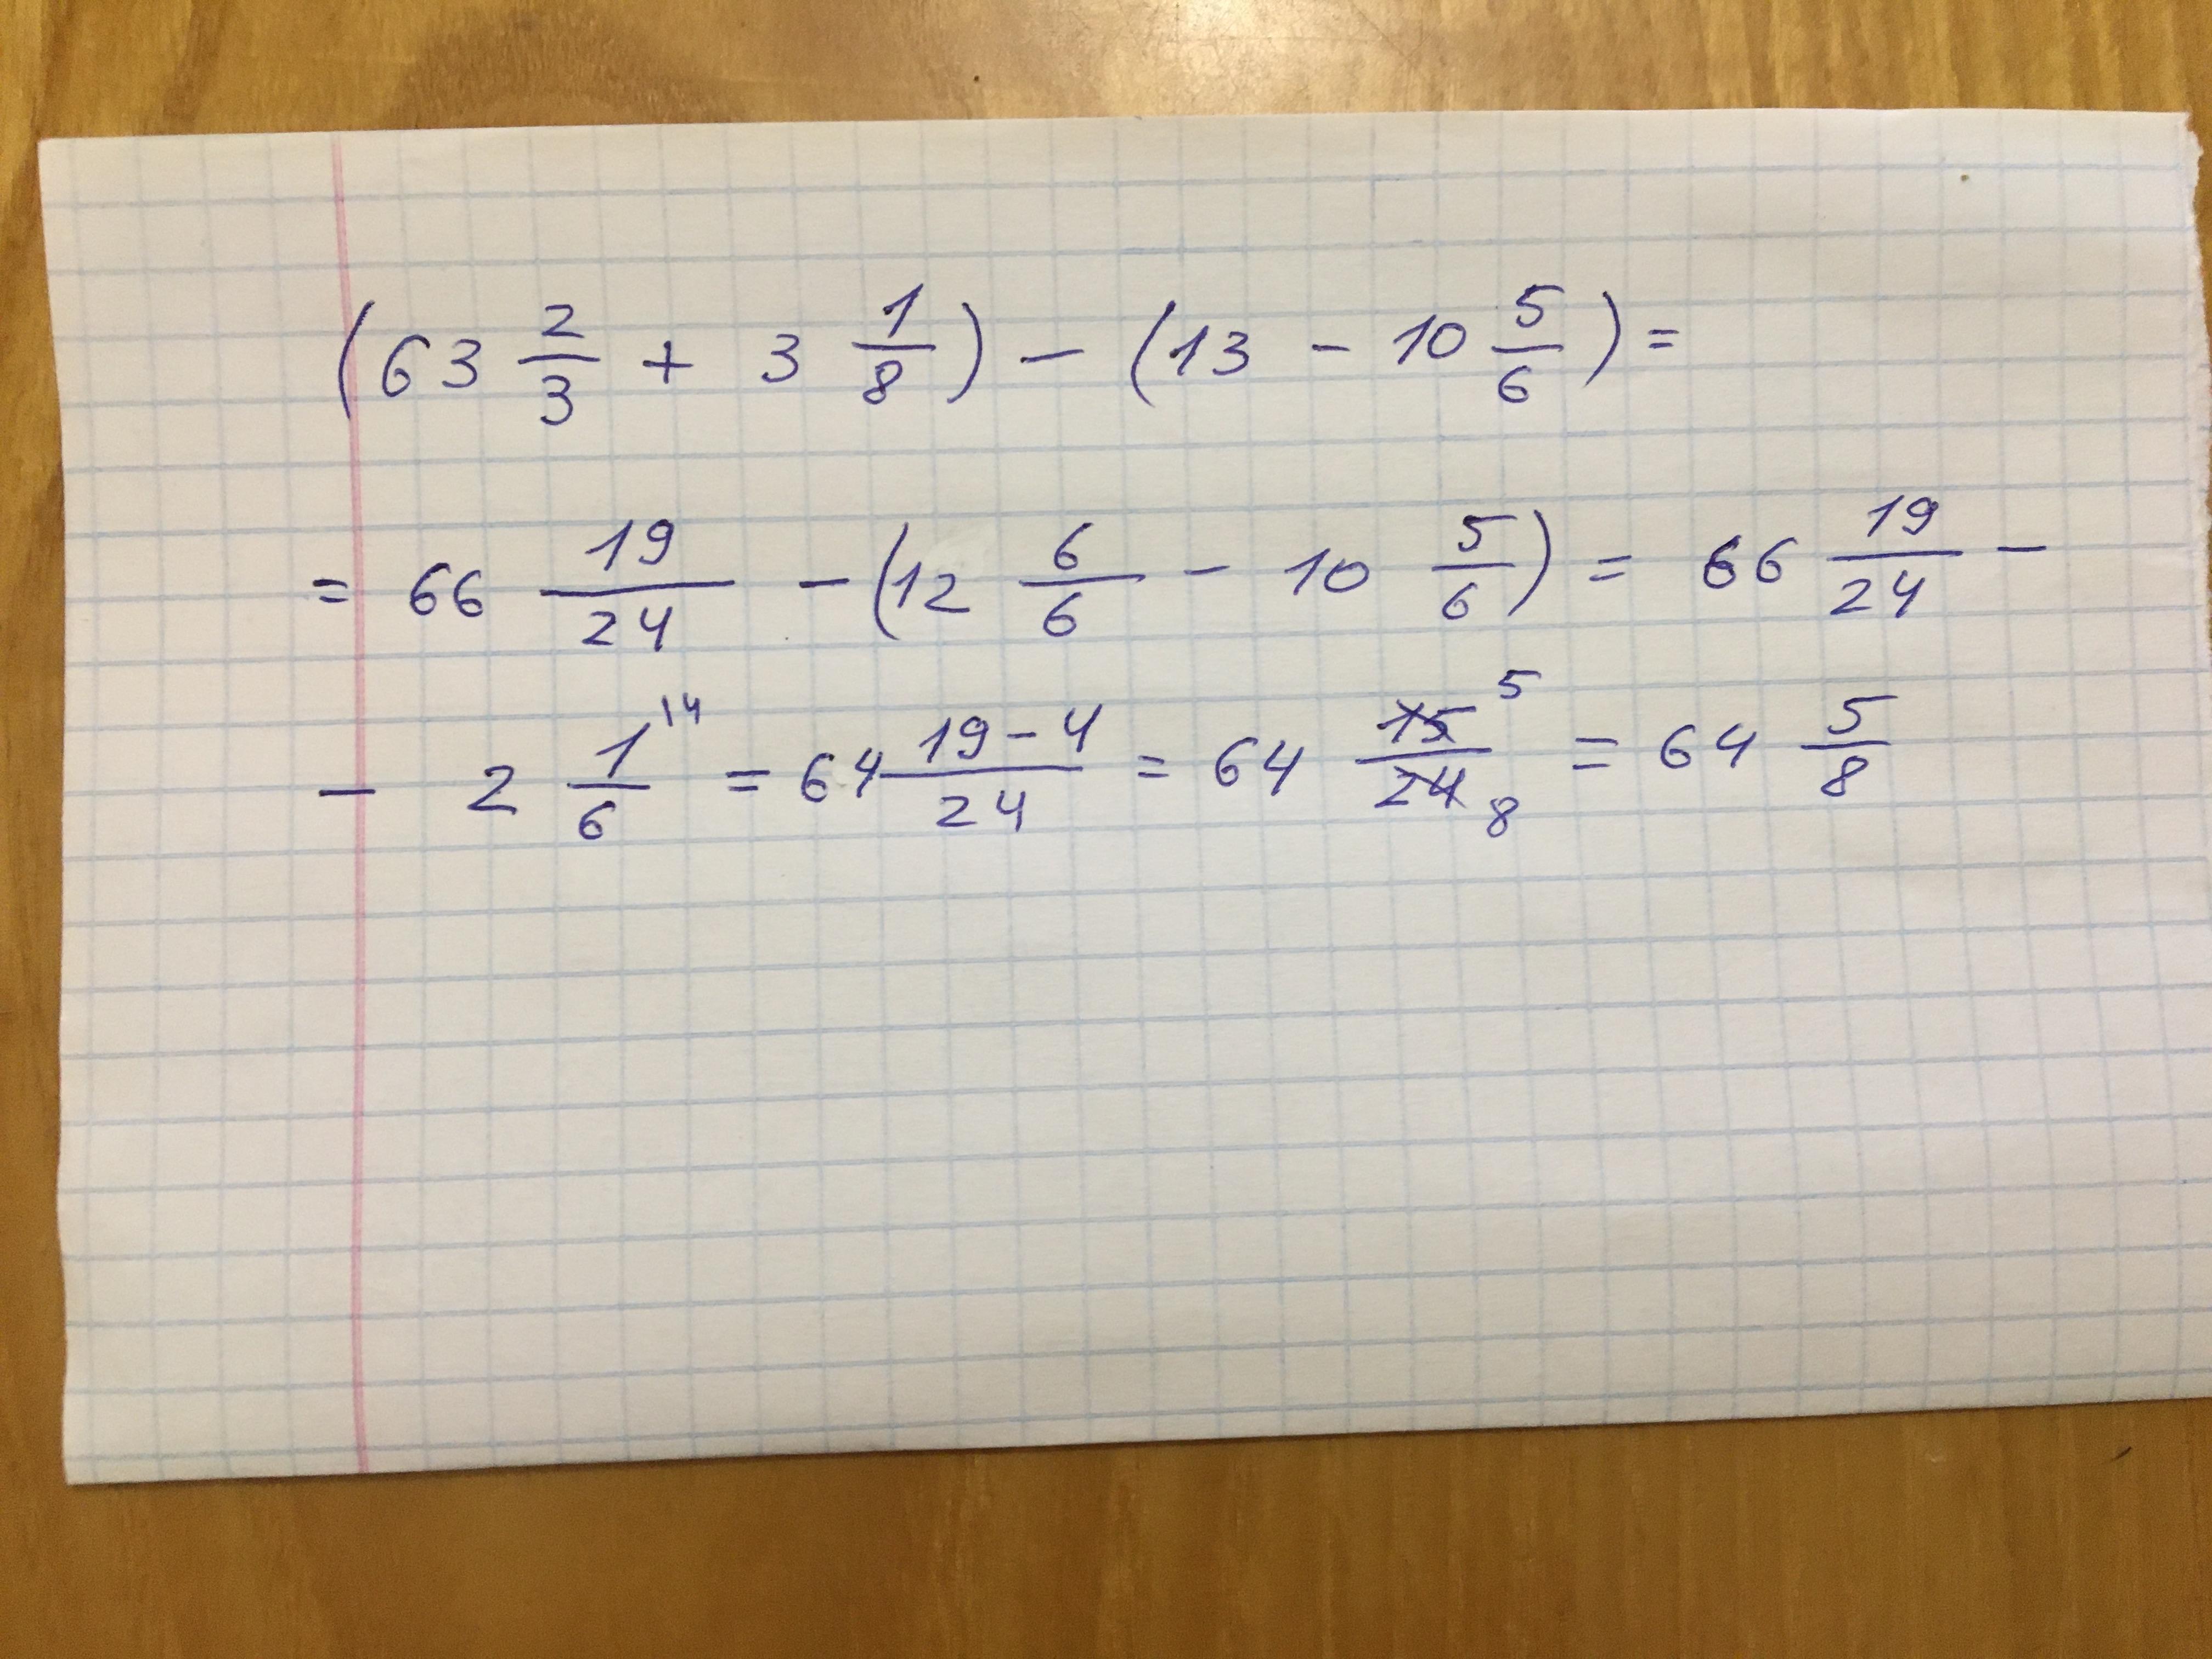 (63 2/3 + 3 1/8) - (13 - 10 5/6) =
= 66 19/24 - (12 6/6 - 10 5/6) = 66 19/24 -
- 2 1/6 ^14 = 64 (19-4)/24 = 64 15/24 ^5 _8 = 64 5/8